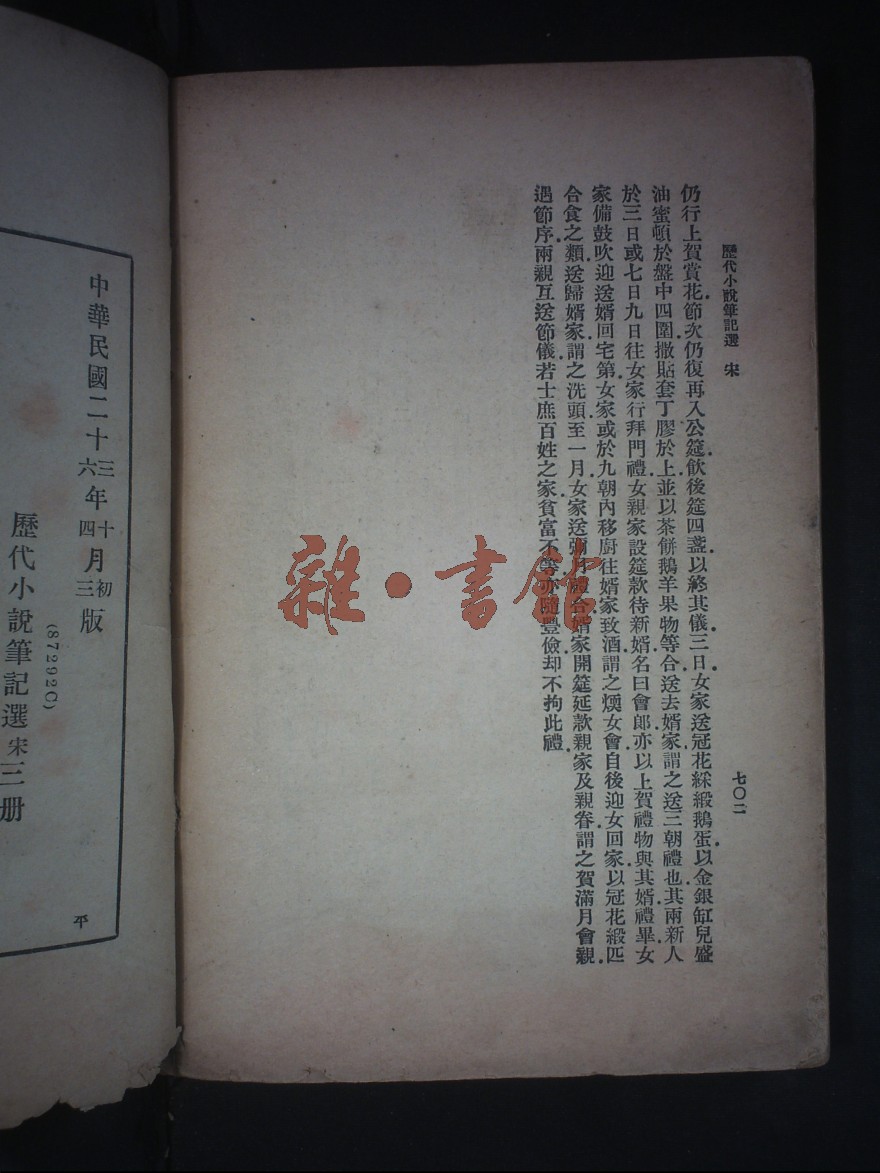 歷代小說筆記選 宋
七〇二
仍行上賀賞花節次仍復再入公筵飲後筵四盞以終其儀三日女家送冠花綵緞鵝蛋以金銀缸兒盛
油蜜頓於盤中四圍撒貼套丁膠於上並以茶餅鵝羊果物等合送去婿家謂之送三朝禮也其兩新人
於三日或七日九日往女家行拜門禮女親家設筵款待新婿名曰會郎亦以上賀禮物與其婿禮畢女
家備鼓吹迎送婿回宅第女家或於九朝內移廚往婿家致酒謂之煖女會自後迎女回家以冠花緞匹
合食之類送歸婿家謂之洗頭至一月女家送彌月禮合婿家開筵延款親家及親眷謂之賀滿月會親
遇節序兩親互送節儀若士庶百姓之家貧富不等亦隨豐儉却不拘此禮
中華民國二十三年十月初版
六 四 三
(87292C)
歷代小說筆記選宋三册
平
雜·書館